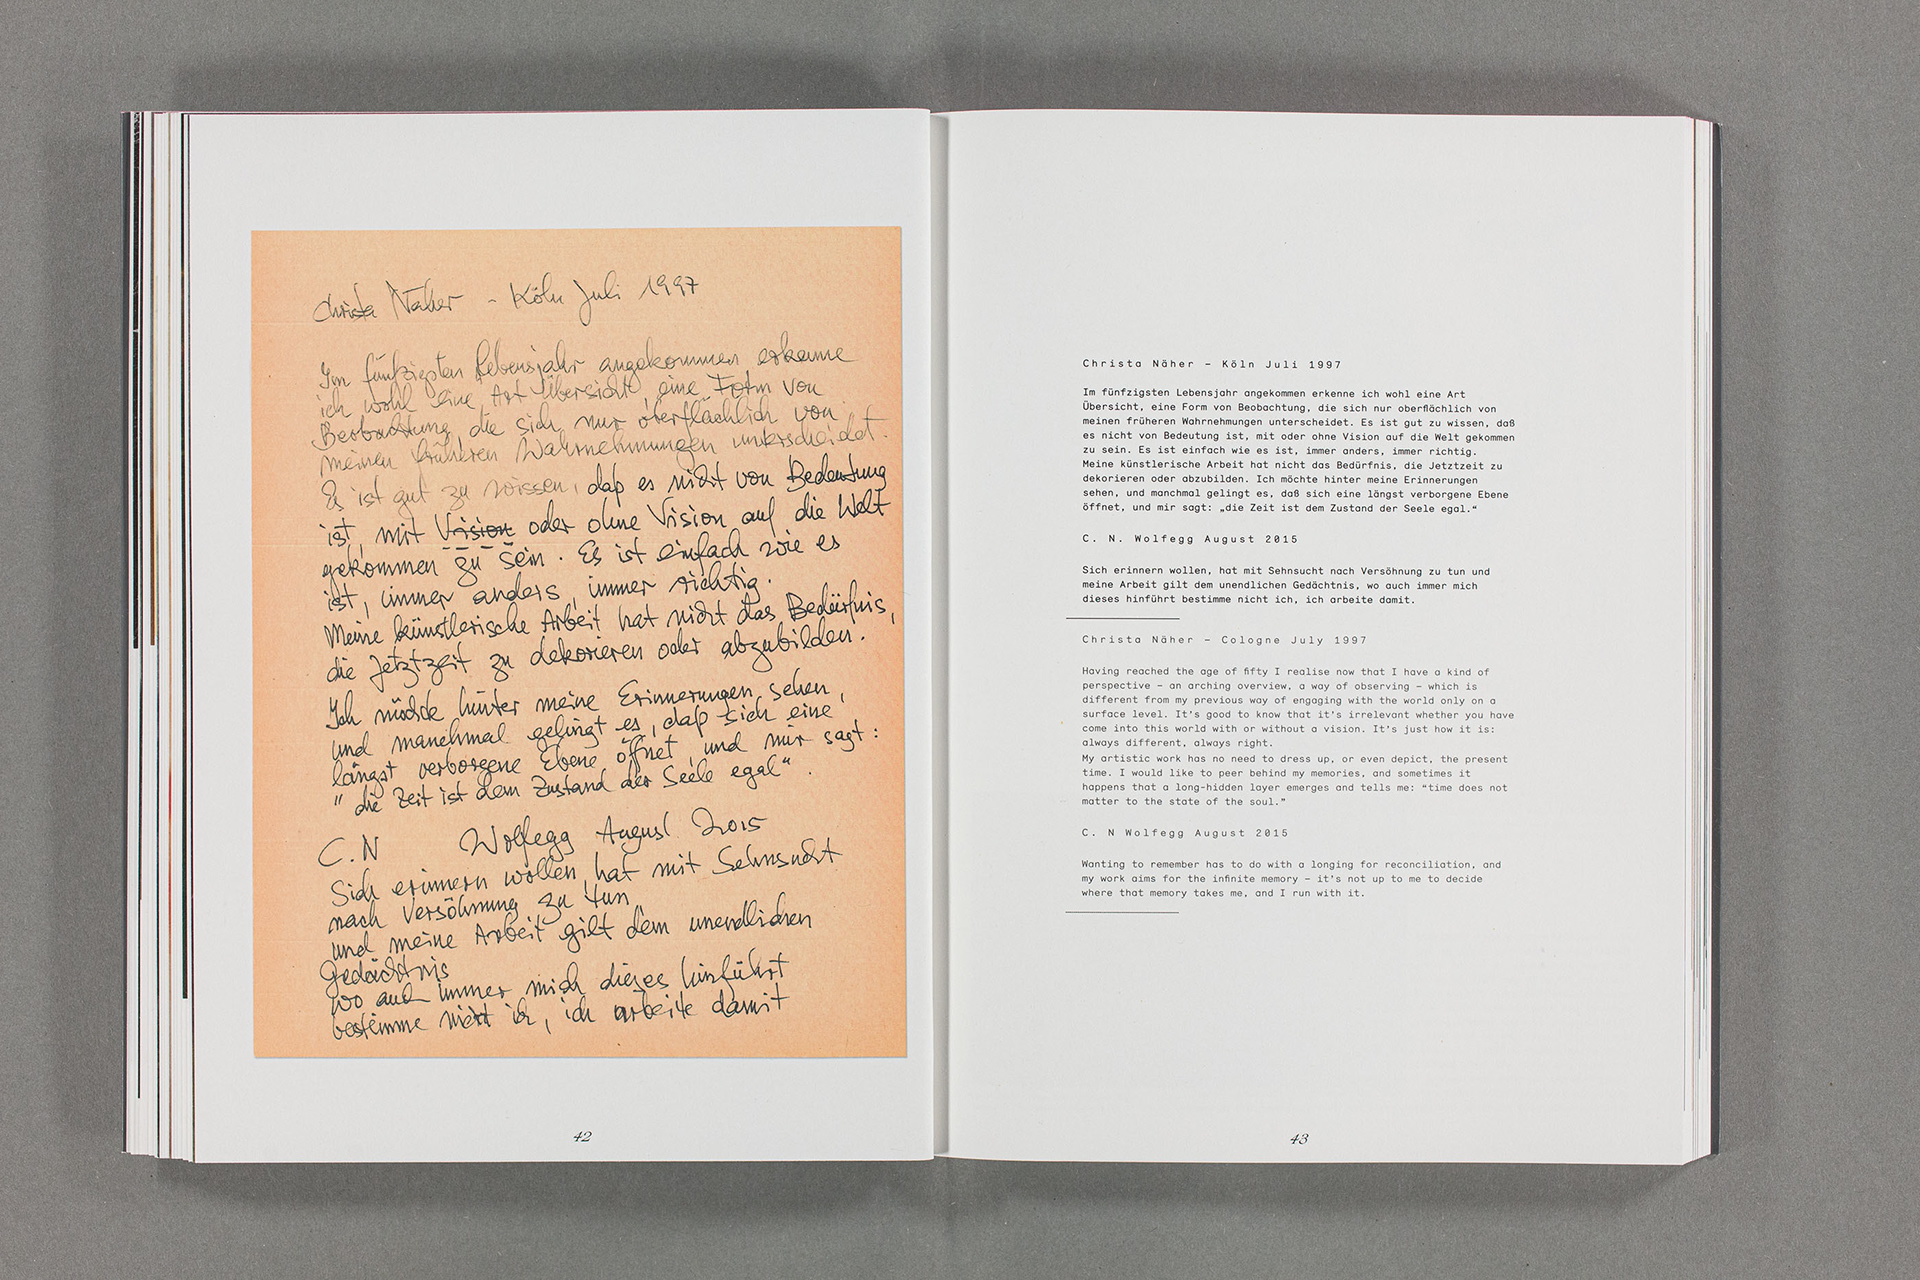 Christa Näher - Köln Juli 1997
Im fünfzigsten Lebensjahr angekommen erkenne
ich wohl eine Art Übersicht, eine Form von
Beobachtung, die sich nur oberflächlich von
meinen früheren Wahrnehmungen unterscheidet.
Es ist gut zu wissen, daß es nicht von Bedeutung
ist, mit Vision oder ohne Vision auf die Welt
gekommen zu sein. Es ist einfach wie es
ist, immer anders, immer richtig.
Meine künstlerische Arbeit hat nicht das Bedürfnis,
die Jetztzeit zu dekorieren oder abzubilden.
Ich möchte hinter meine Erinnerungen sehen,
und manchmal gelingt es, daß sich eine
längst verborgene Ebene öffnet, und mir sagt:
"die Zeit ist dem Zustand der Seele egal".
C.N Wolfegg August 2015
Sich erinnern wollen, hat mit Sehnsucht
nach Versöhnung zu tun
und meine Arbeit gilt dem unendlichen
Gedächtnis
wo auch immer mich dieses hinführt
bestimme nicht ich, ich arbeite damit
42
Christa Näher – Köln Juli 1997
Im fünfzigsten Lebensjahr angekommen erkenne ich wohl eine Art
Übersicht, eine Form von Beobachtung, die sich nur oberflächlich von
meinen früheren Wahrnehmungen unterscheidet. Es ist gut zu wissen, daß
es nicht von Bedeutung ist, mit oder ohne Vision auf die Welt gekommen
zu sein. Es ist einfach wie es ist, immer anders, immer richtig.
Meine künstlerische Arbeit hat nicht das Bedürfnis, die Jetztzeit zu
dekorieren oder abzubilden. Ich möchte hinter meine Erinnerungen
sehen, und manchmal gelingt es, daß sich eine längst verborgene Ebene
öffnet, und mir sagt: „die Zeit ist dem Zustand der Seele egal.“
C. N. Wolfegg August 2015
Sich erinnern wollen, hat mit Sehnsucht nach Versöhnung zu tun und
meine Arbeit gilt dem unendlichen Gedächtnis, wo auch immer mich
dieses hinführt bestimme nicht ich, ich arbeite damit.
Christa Näher – Cologne July 1997
Having reached the age of fifty I realise now that I have a kind of
perspective – an arching overview, a way of observing – which is
different from my previous way of engaging with the world only on a
surface level. It’s good to know that it’s irrelevant whether you have
come into this world with or without a vision. It’s just how it is:
always different, always right.
My artistic work has no need to dress up, or even depict, the present
time. I would like to peer behind my memories, and sometimes it
happens that a long-hidden layer emerges and tells me: “time does not
matter to the state of the soul.”
C. N Wolfegg August 2015
Wanting to remember has to do with a longing for reconciliation, and
my work aims for the infinite memory – it’s not up to me to decide
where that memory takes me, and I run with it.
43